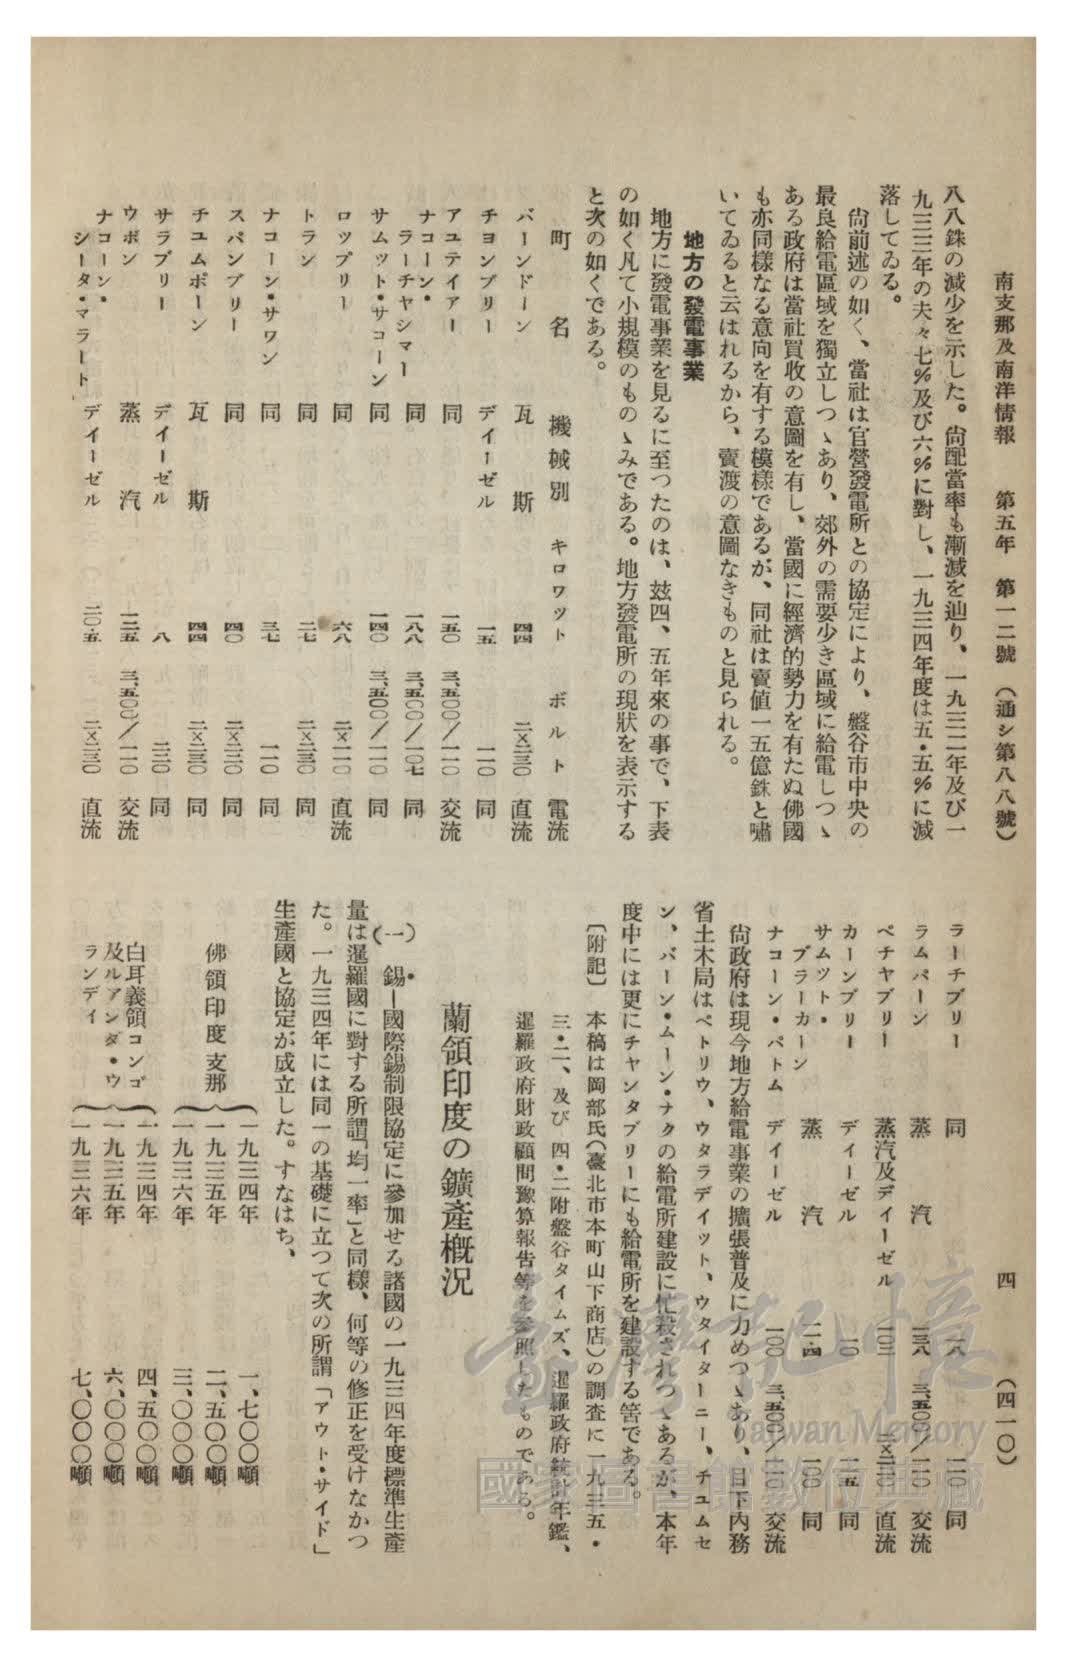 南支那及南洋情報　第五年　第一二號　（通シ第八八號）　四　（四一〇）
八八銖の減少を示した。尙配當率も漸減を辿り、一九三二年及び一
九三三年の夫々七％及び六％に對し、一九三四年度は五・五％に減
落してゐる。
尙前述の如く、當社は官營發電所との協定により、盤谷市中央の
最良給電區域を獨立しつゝあり、郊外の需要少き區域に給電しつゝ
ある政府は當社買收の意圖を有し、當國に經濟的勢力を有たぬ佛國
も亦同樣なる意向を有する模樣であるが、同社は賣値一五億銖と嘯
いてゐると云はれるから、賣渡の意圖なきものと見られる。
地方の發電事業
地方に發電事業を見るに至つたのは、玆四、五年來の事で、下表
の如く凡て小規模のものゝみである。地方發電所の現狀を表示する
と次の如くである。
町名　機械別　キロワツト　ボルト　電流
バーンドーン　瓦斯　四四　二×二三〇　直流
チヨンブリー　デイーゼル　一五　一一〇　同
アユテイアー　同　一五〇　三、五〇〇／一一〇　交流
ナコーン・
ラーチヤシマー　同　一八八　三、五〇〇／一〇七　同
サムット・サコーン　同　一四〇　三、五〇〇／一一〇　同
ロツブリー　同　六八　二×一一〇　直流
トラン　同　二七　二×二三〇　同
ナコーン・サワン　同　三七　一一〇　同
スパンブリー　同　四〇　二×二二〇　同
チユムポーン　瓦斯　四四　二×二三〇　同
サラブリー　デイーゼル　八　二二〇　同
ウボン　蒸汽　二二五　三、五〇〇／一一〇　交流
ナコーン・
シータ・マラート　デイーゼル　二〇・五　二×二三〇　直流
ラーチブリー　同　一八　二二〇　同
ラムパーン　蒸汽　一三八　三、五〇〇／一一〇　交流
ペチヤブリー　蒸汽及デイーゼル　一〇三　二×二二〇　直流
カーンブリー　デイーゼル　二〇　一一五　同
サムツト・
プラーカーン　蒸汽　二一・四　一〇〇　同
ナコーン・パトム　デイーゼル　一〇〇　三、五〇〇／一一〇　交流
尙政府は現今地方給電事業の擴張普及に力めつゝあり、目下內務
省土木局はペトリウ、ウタラデイット、ウタイターニー、チユムセ
ン、バーン・ムーン・ナクの給電所建設に忙殺されつゝあるが、本年
度中には更にチャンタブリーにも給電所を建設する筈である。
〔附記〕　本稿は岡部氏（臺北市本町山下商店）の調査に一九三五・
三・二、及び四・二附盤谷タイムズ、暹羅政府統計年鑑、
暹羅政府財政顧問豫算報告等を參照したものである。
蘭領印度の鑛產槪況
（一）　錫―國際錫制限協定に參加せる諸國の一九三四年度標準生產
量は暹羅國に對する所謂「均一率」と同樣、何等の修正を受けなかつ
た。一九三四年には同一の基礎に立つて次の所謂「アウト・サイド」
生產國と協定が成立した。すなはち、
佛領印度支那　一九三四年　一、七〇〇噸
一九三五年　二、五〇〇噸
一九三六年　三、〇〇〇噸
白耳義領コンゴ
及ルアンダ・ウ
ランデイ　一九三四年　四、五〇〇噸
一九三五年　六、〇〇〇噸
一九三六年　七、〇〇〇噸
臺灣記憶
Taiwan Memory
國家圖書館數位典藏